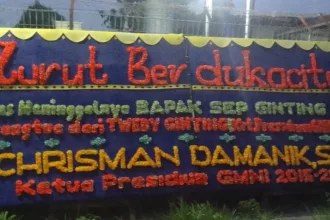 Turut Berdukacit
Meninggalnya BAPAK SEP GINTING
dari TWEDY GINTING
CHRISMAN DAMANIK,S
Ketua Presidium GMNI 2015-2